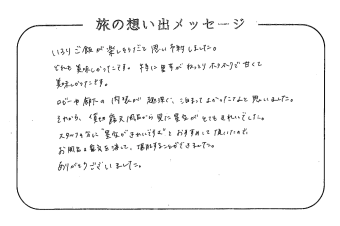 旅の想い出メッセージ
いろりご飯が楽しそうだなと思い予約しました。
どれも美味しかったです。特に里芋がねっとりホクホクで甘くて
美味しかったです。
ロビーや廊下の内装が趣深く、泊まってよかったなと思いました。
それから、貸切露天風呂から見た星空がとてもきれいでした。
スタッフの方に"星空がきれいですよ"とおすすめして頂いたので、
お風呂の電気を消して、堪能することができました。
ありがとうございました。